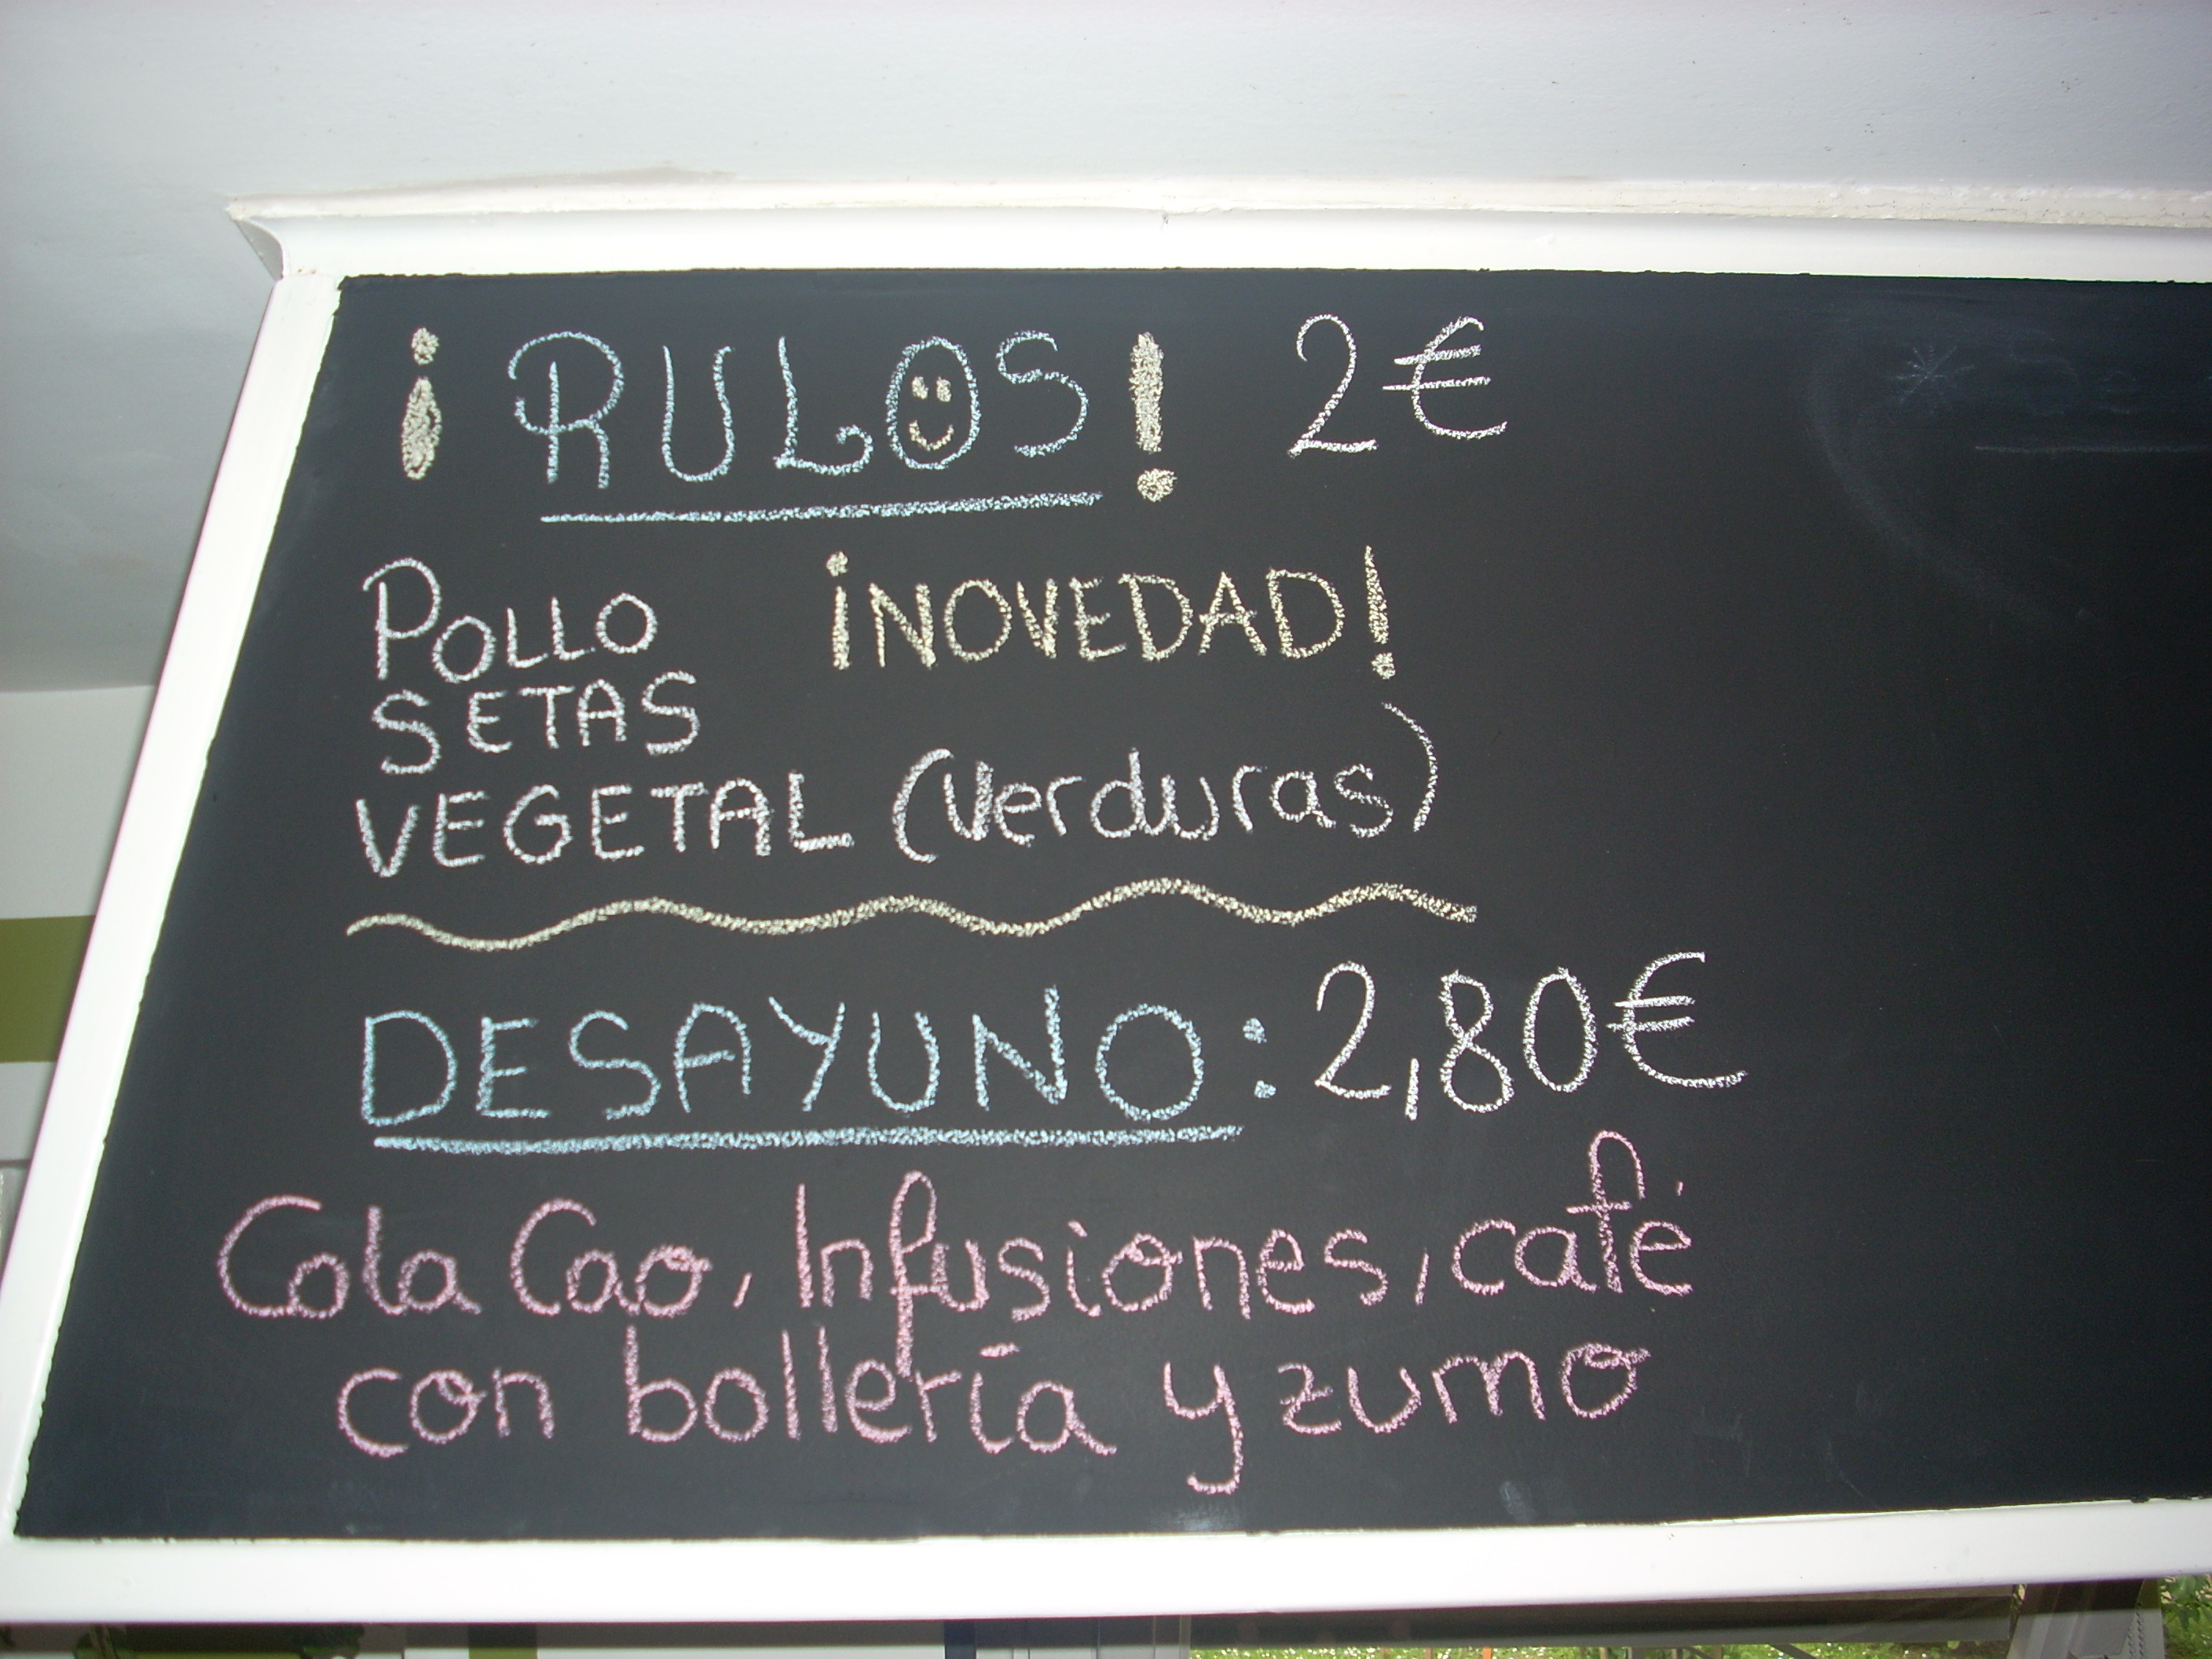 ¡RULOS! 2€
POLLO ¡NOVEDAD!
SETAS
VEGETAL (Verduras)
DESAYUNO: 2,80€
Cola Cao, Infusiones, café
con bollería y zumo